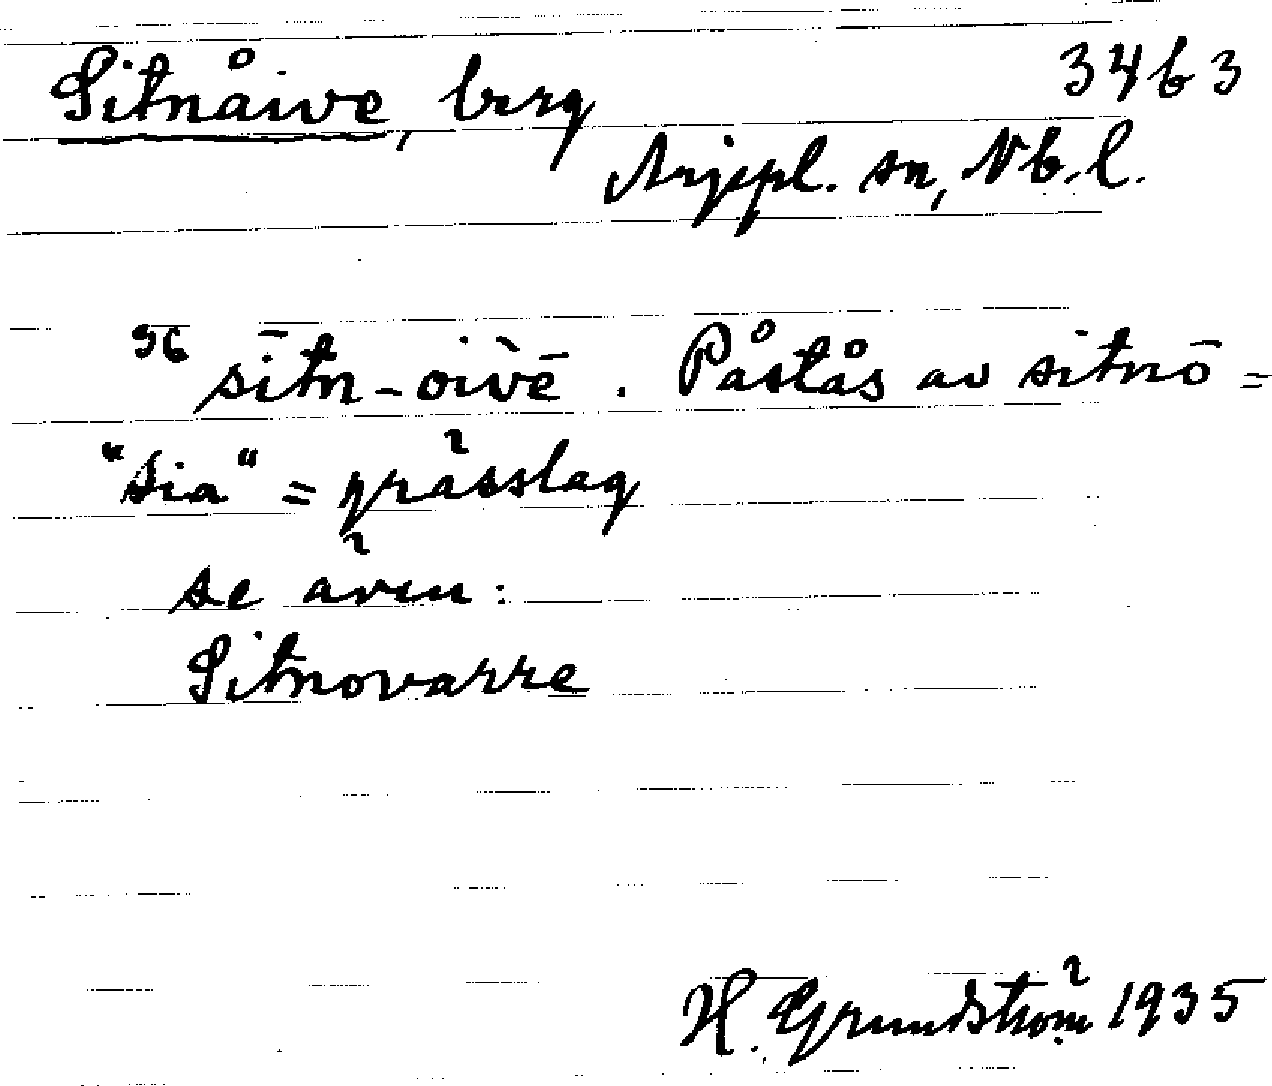 Sitnåive, berg 3463
Arjepl. sn, Nb.l.
96 sītn-oi̇̀vē. Påstås av sitnō =
"sia" = grässlag
se även:
Sitnovarre
H. Grundström 1935